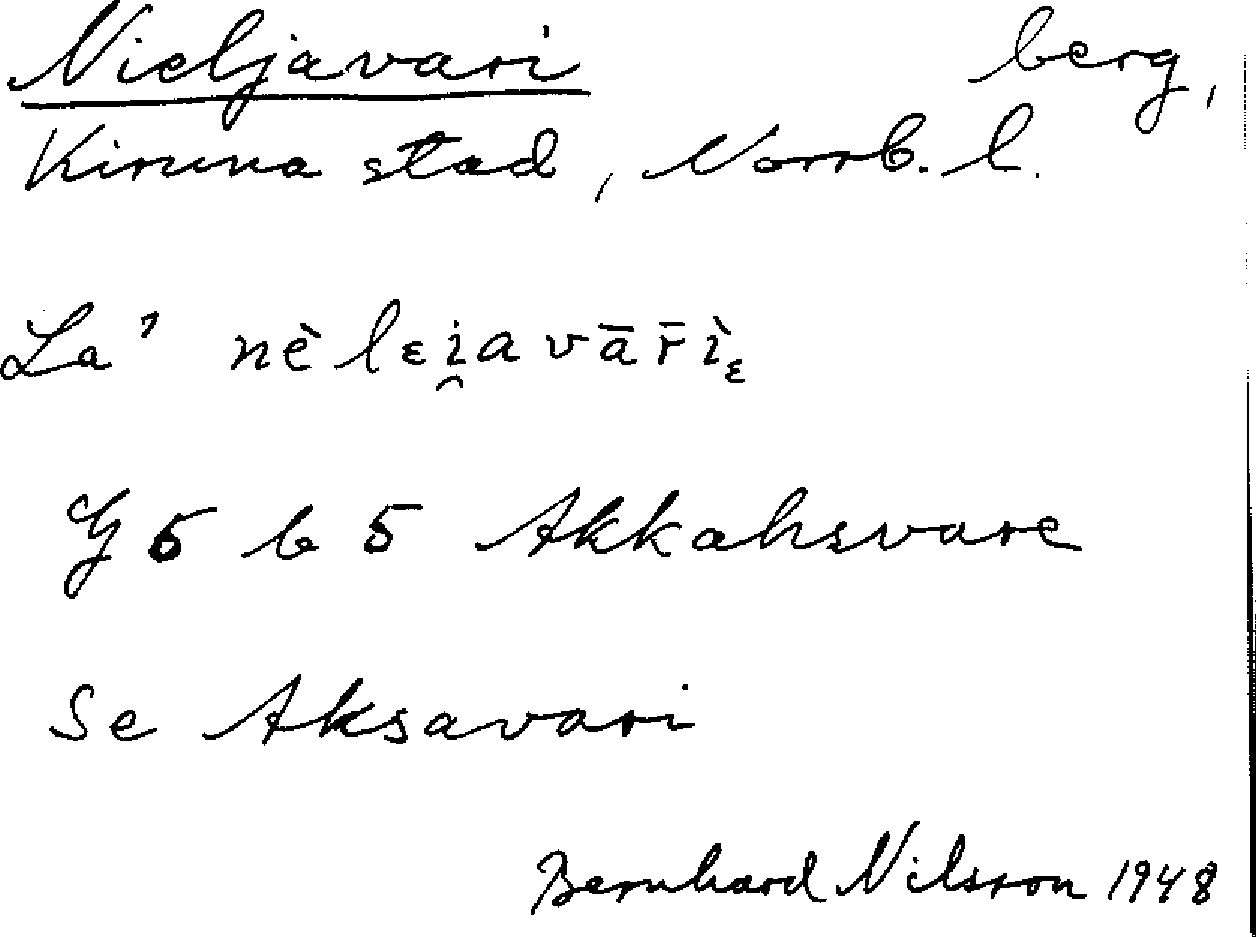 Nieljavari berg,
Kiruna stad, Norrb. l.
La' nè lɛi̯avār̄ìɛ
G 5 b 5 Akkahsvare
Se Aksavari
Bernhard Nilsson 1948